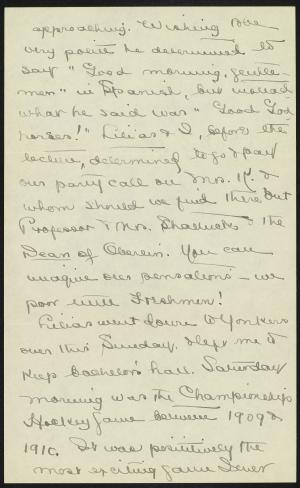 approaching. Wishing to be
very polite he determined to
say "Good morning, gentle-
men" in Spanish, but instead
what he said was "Good God
horses!" Lilias & I, before the
lecture, determined to go & pay
our party call on Mrs. K. &
whom should we find there but
Professor & Mrs. Shattuck & the
Dean of Oberlin. You can
imagine our sensations - we
poor little Freshmen!
Lilias went down to Yonkers
over this Sunday, & left me to
keep bachelor's hall. Saturday
morning was the Championship
Hockey Game between 1909 &
1910. It was positively the
most exciting game I ever